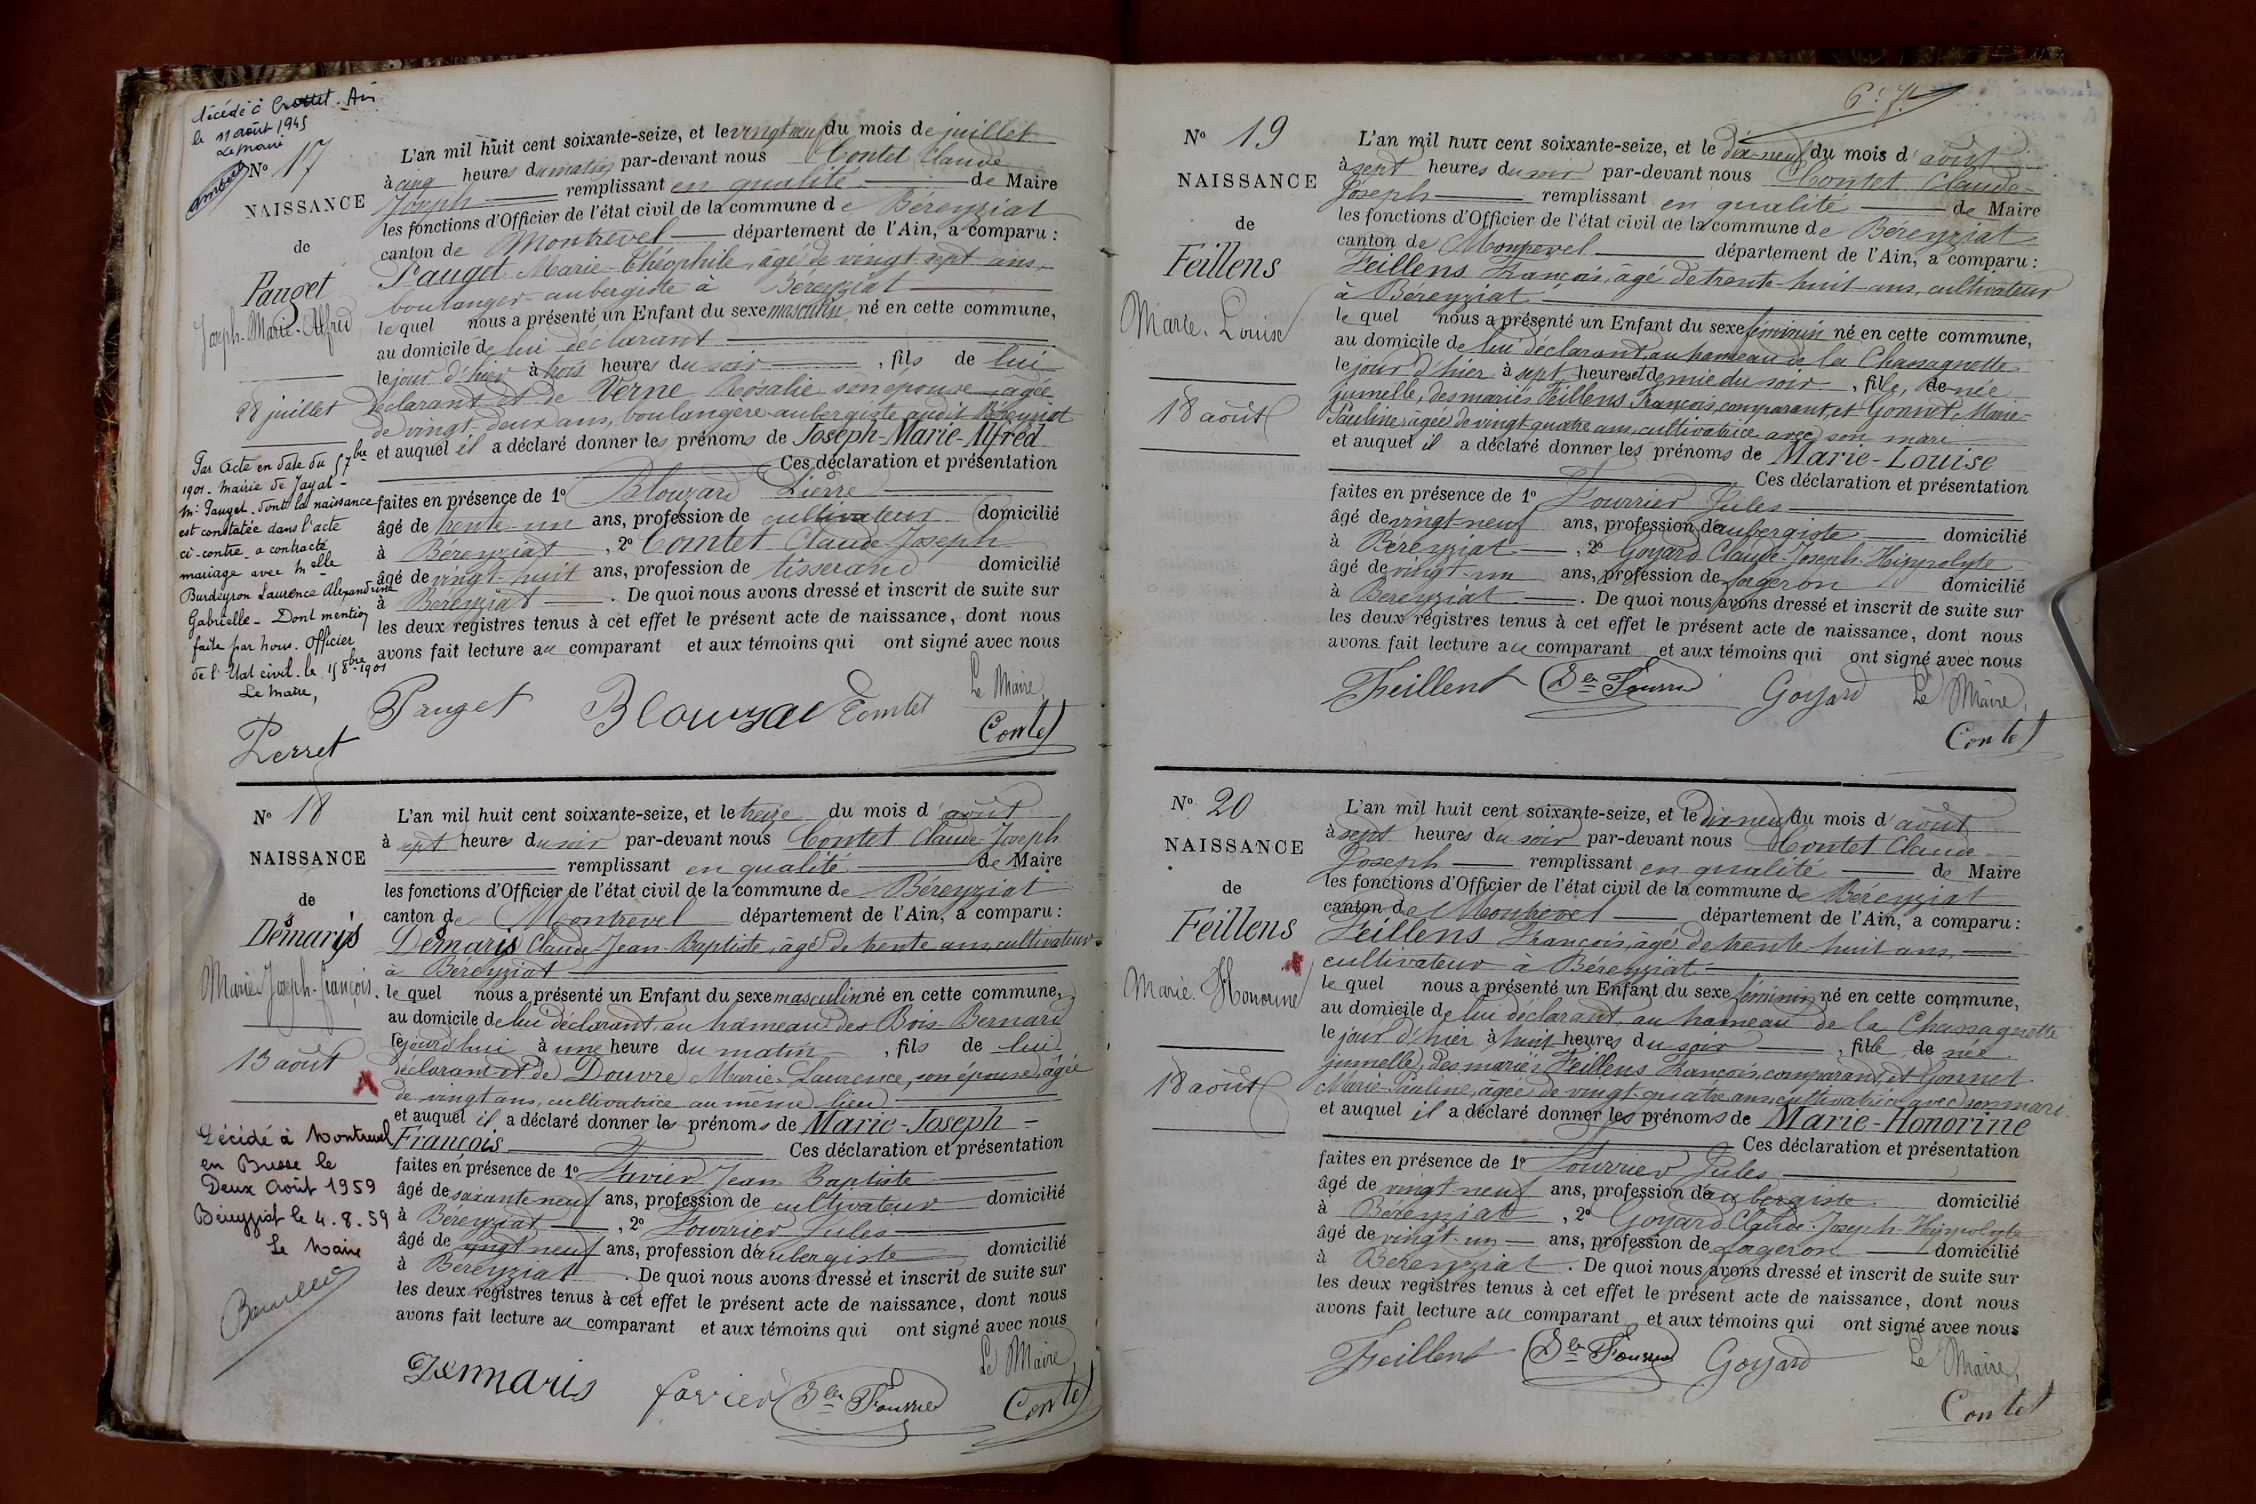 décédé à Crottet. Ain
le 11 août 1945
Le maire
No 17
NAISSANCE
de
Pauget
Joseph-Marie-Alfred
28 juillet
Par acte en date du 5 7bre
1901 - mairie de Jayat -
Mr Pauget. dont la naissance
est constatée dans l'acte
ci-contre a contracté
mariage avec Melle
Burdeyron Laurence Alexandrine
Gabrielle - Dont mention
faite par nous. Officier
de l'Etat civil. le 15 8bre 1901
Le maire,
Perret
L'an mil huit cent soixante-seize, et le vingt neuf du mois de juillet
à cinq heures du matin par-devant nous Contet Claude
Joseph remplissant en qualité de Maire
les fonctions d'Officier de l'état civil de la commune de Béreyziat
canton de Montrevel département de l'Ain, a comparu :
Pauget Marie-Théophile, âgé de vingt sept ans,
boulanger-aubergiste à Béreyziat
lequel nous a présenté un Enfant du sexe masculin né en cette commune,
au domicile de lui déclarant
le jour d'hier à trois heures du soir , fils de lui
déclarant et de Verne Rosalie son épouse âgée
de vingt-deux ans, boulangère-aubergiste audit Béreyziat
et auquel il a déclaré donner les prénoms de Joseph-Marie-Alfred
Ces déclaration et présentation
faites en présence de 1o Blouzard Pierre
âgé de trente-un ans, profession de cultivateur domicilié
à Béreyziat , 2o Comtet Claude-Joseph
âgé de vingt-huit ans, profession de tisserand domicilié
à Béreyziat . De quoi nous avons dressé et inscrit de suite sur
les deux registres tenus à cet effet le présent acte de naissance, dont nous
avons fait lecture au comparant et aux témoins qui ont signé avec nous
Pauget Blouzard Comtet Le Maire
Contet
No 18
NAISSANCE
de
Démaris
Marie-Joseph-François.
13 août
Décédé à Montrevel
en Bresse le
Deux Août 1959
Béreyziat le 4.8.59
Le Maire
L'an mil huit cent soixante-seize, et le treize du mois d'août
à sept heures du soir par-devant nous Contet Claude-Joseph
remplissant en qualité de Maire
les fonctions d'Officier de l'état civil de la commune de Béreyziat
canton de Montrevel département de l'Ain, a comparu :
Démaris Claude-Jean-Baptiste, âgé de trente ans, cultivateur
à Béreyziat
lequel nous a présenté un Enfant du sexe masculin né en cette commune,
au domicile de lui déclarant, au hameau des Bois-Bernard
lejourd'hui à une heure du matin , fils de lui
déclarant et de Douvre Marie-Laurence, son épouse, âgée
de vingt ans, cultivatrice au même lieu
et auquel il a déclaré donner les prénoms de Marie-Joseph-
François Ces déclaration et présentation
faites en présence de 1o Favier Jean Baptiste
âgé de soixante-neuf ans, profession de cultivateur domicilié
à Béreyziat , 2o Fourrier Jules
âgé de vingt neuf ans, profession d'aubergiste domicilié
à Béreyziat . De quoi nous avons dressé et inscrit de suite sur
les deux registres tenus à cet effet le présent acte de naissance, dont nous
avons fait lecture au comparant et aux témoins qui ont signé avec nous
Demmaris favier Fourrier Le Maire
Contet
No 19
NAISSANCE
de
Feillens
Marie-Louise
18 août
L'an mil huit cent soixante-seize, et le dix-neuf du mois d'août
à sept heures du soir par-devant nous Contet Claude-
Joseph remplissant en qualité de Maire
les fonctions d'Officier de l'état civil de la commune de Béreyziat
canton de Montrevel département de l'Ain, a comparu :
Feillens François, âgé de trente-huit ans, cultivateur
à Béreyziat
lequel nous a présenté un Enfant du sexe féminin né en cette commune,
au domicile de lui déclarant, au hameau de la Chassagnette
le jour d'hier à sept heures et demie du soir , fille, de née
jumelle, des mariés Feillens François, comparant, et Gonnet Marie-
Pauline, âgée de vingt quatre ans, cultivatrice avec son mari
et auquel il a déclaré donner les prénoms de Marie-Louise
Ces déclaration et présentation
faites en présence de 1o Fourrier Jules
âgé de vingt-neuf ans, profession d'aubergiste domicilié
à Béreyziat , 2o Goyard Claude-Joseph-Hippolyte
âgé de vingt-un ans, profession de forgeron domicilié
à Béreyziat . De quoi nous avons dressé et inscrit de suite sur
les deux registres tenus à cet effet le présent acte de naissance, dont nous
avons fait lecture au comparant et aux témoins qui ont signé avec nous
Feillens Fourrier Goyard Le Maire,
Contet
No 20
NAISSANCE
de
Feillens
Marie-Honorine
18 août
L'an mil huit cent soixante-seize, et le dix neuf du mois d'août
à sept heures du soir par-devant nous Contet Claude
Joseph remplissant en qualité de Maire
les fonctions d'Officier de l'état civil de la commune de Béreyziat
canton de Montrevel département de l'Ain, a comparu :
Feillens François, âgé de trente-huit ans,
cultivateur à Béreyziat
lequel nous a présenté un Enfant du sexe féminin né en cette commune,
au domicile de lui déclarant, au hameau de la Chassagnette
le jour d'hier à huit heures du soir , fille de née
jumelle, des mariés Feillens François, comparant, et Gonnet
Marie-Pauline, âgée de vingt-quatre ans cultivatrice avec son mari
et auquel il a déclaré donner les prénoms de Marie-Honorine
Ces déclaration et présentation
faites en présence de 1o Fourrier Jules
âgé de vingt neuf ans, profession d'aubergiste domicilié
à Béreyziat , 2o Goyard Claude-Joseph-Hippolyte
âgé de vingt-un ans, profession de forgeron domicilié
à Béreyziat . De quoi nous avons dressé et inscrit de suite sur
les deux registres tenus à cet effet le présent acte de naissance, dont nous
avons fait lecture au comparant et aux témoins qui ont signé avec nous
Feillens Fourrier Goyard Le Maire,
Contet